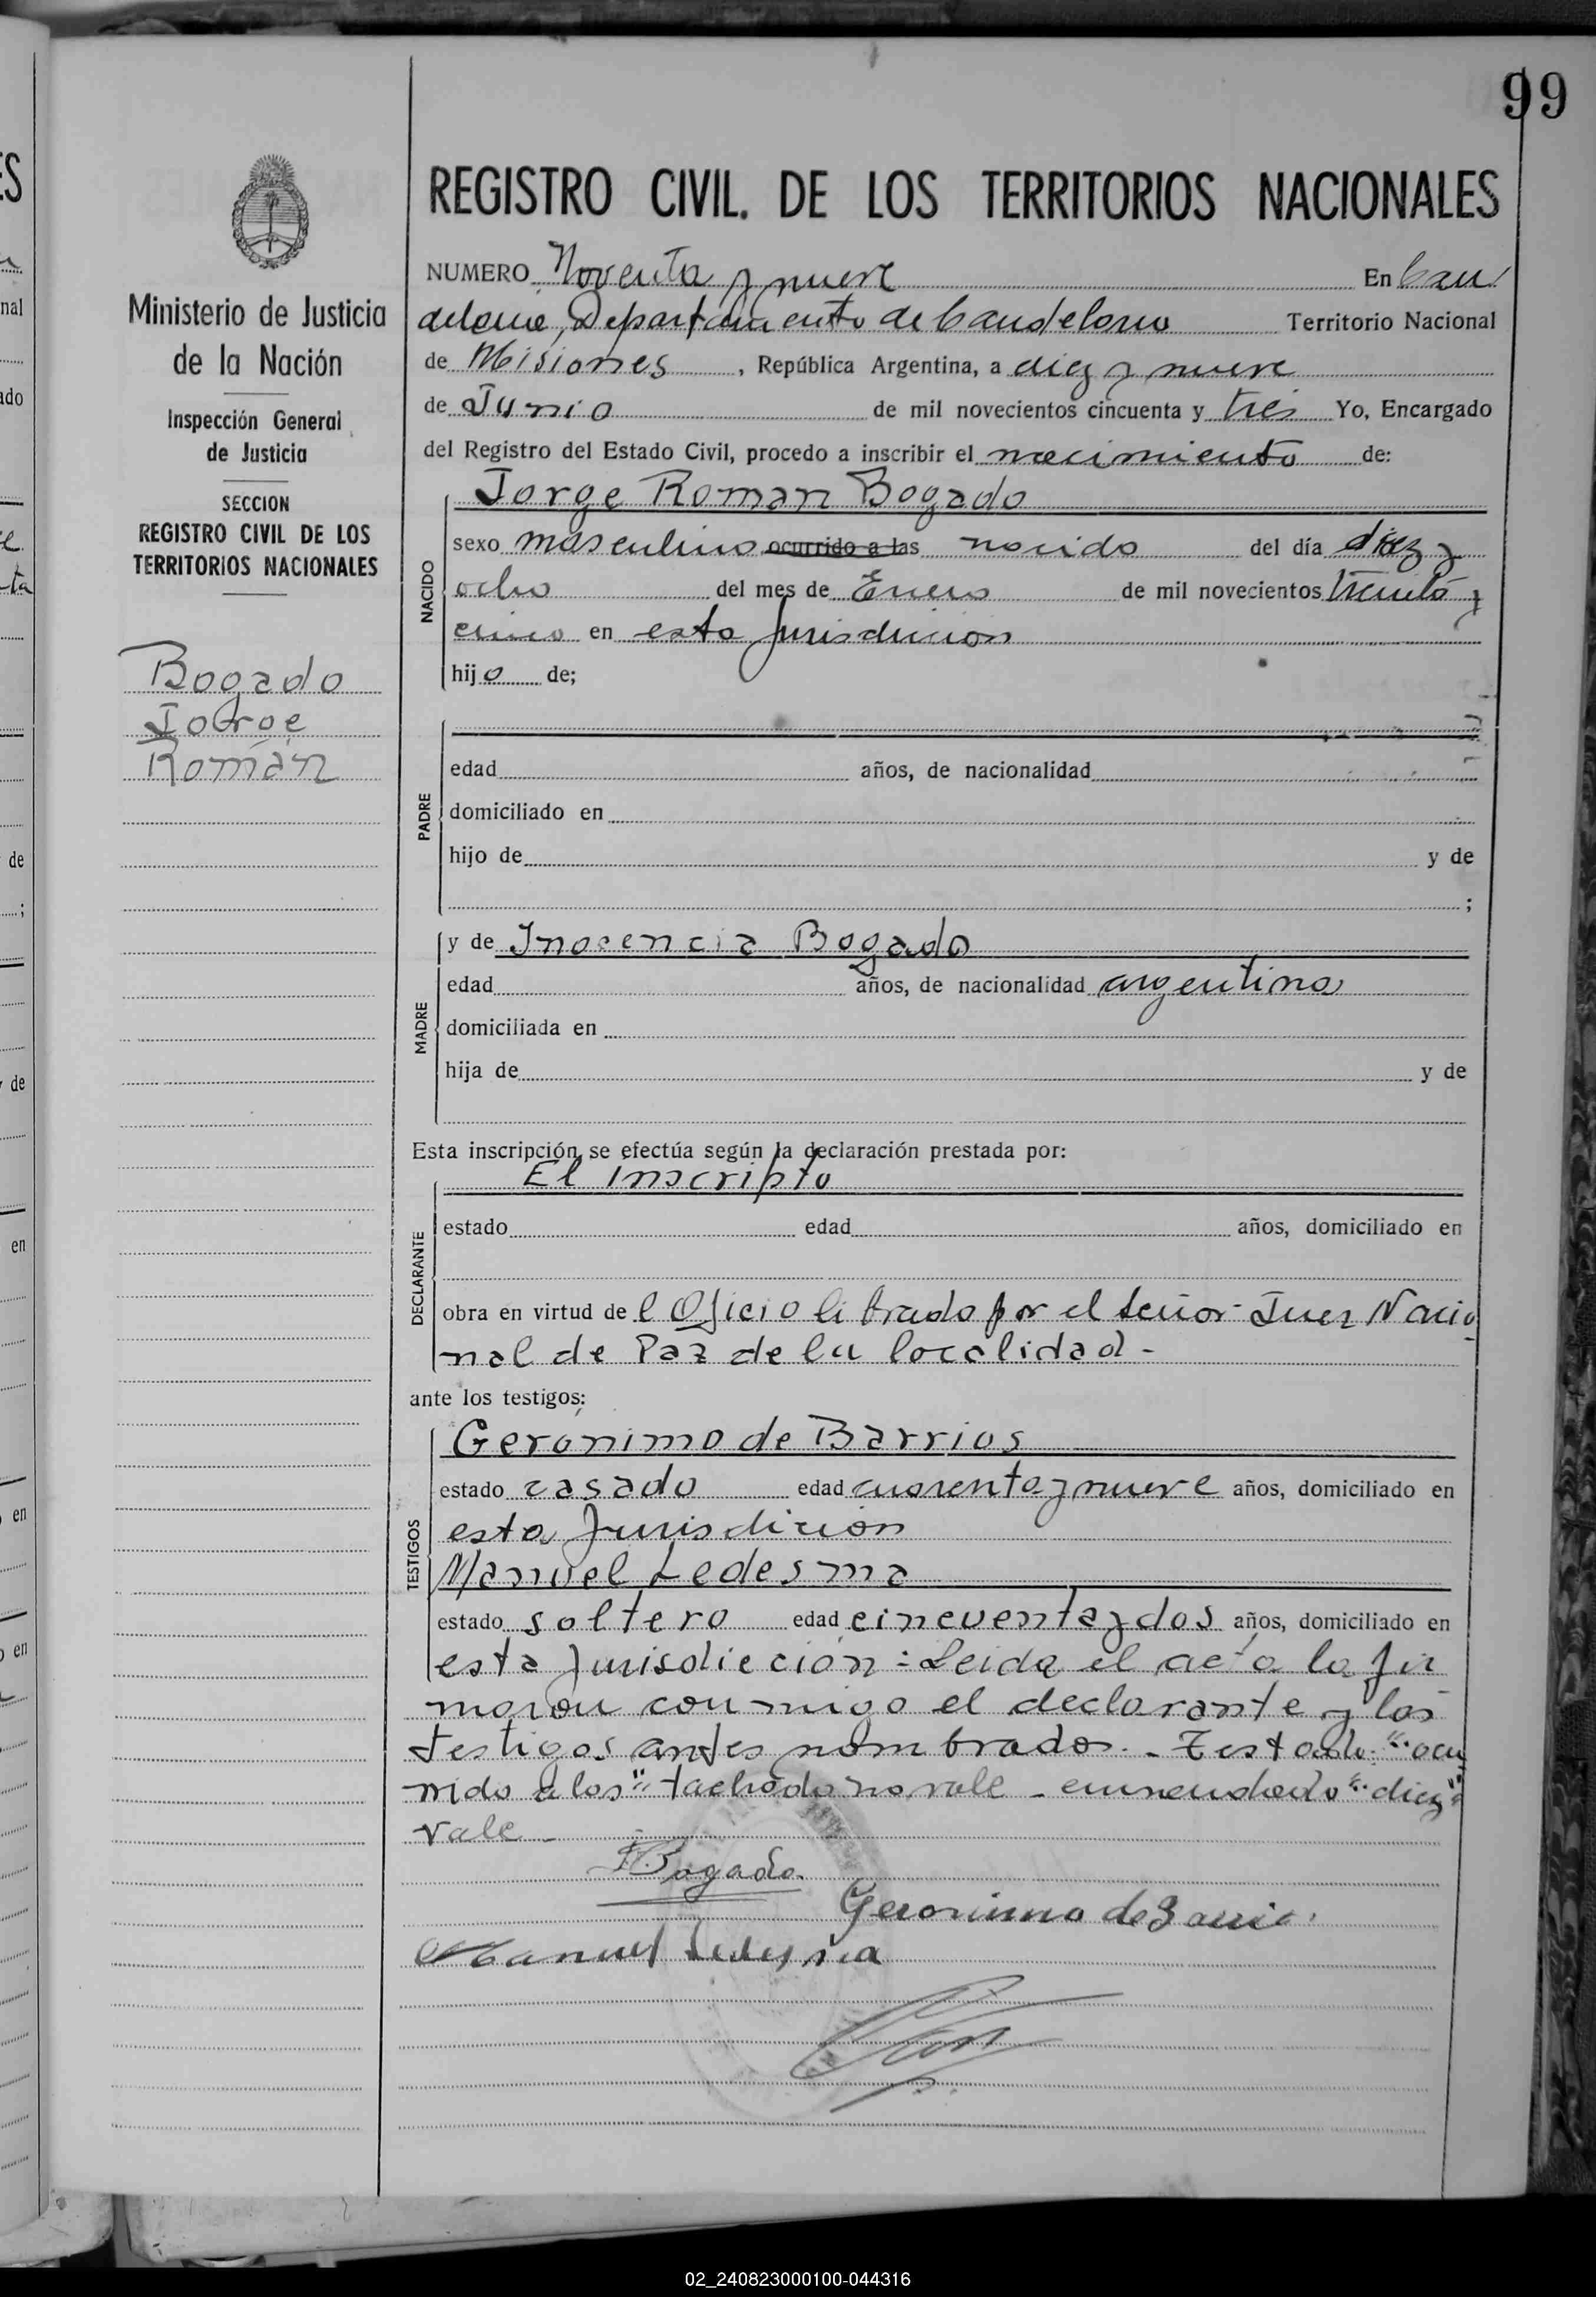 99
REGISTRO CIVIL. DE LOS TERRITORIOS NACIONALES
Ministerio de Justicia
de la Nación
Inspección General
de Justicia
SECCION
REGISTRO CIVIL DE LOS
TERRITORIOS NACIONALES
Bogado
Jorge
Román
NUMERO Noventa y nueve En Can
delaria, Departamento de Candelaria Territorio Nacional
de Misiones, República Argentina, a diez y nueve
de Junio de mil novecientos cincuenta y tres Yo, Encargado
del Registro del Estado Civil, procedo a inscribir el nacimiento de:
NACIDO
Jorge Roman Bogado
sexo masculino ocurrido a las nacido del día diez y
ocho del mes de Enero de mil novecientos treinta y
cinco en esta Jurisdiccion
hijo de;
PADRE
edad años, de nacionalidad
domiciliado en
hijo de y de
;
MADRE
y de Inocencia Bogado
edad años, de nacionalidad argentina
domiciliada en
hija de y de
Esta inscripción se efectúa según la declaración prestada por:
DECLARANTE
El Inscripto
estado edad años, domiciliado en
obra en virtud del Oficio librado por el señor Juez Nacio
nal de Paz de la localidad -
ante los testigos:
TESTIGOS
Gerónimo de Barrios
estado casado edad cuarenta y nueve años, domiciliado en
esta Jurisdicion
Manuel Ledesma
estado soltero edad cincuenta y dos años, domiciliado en
esta Jurisdicción: Leida el acta la fir
maron conmigo el declarante y los
testigos antes nombrados. - Testado: "ocu
rrido a las" tachado no vale - enmendado "diez"
vale -
Bogado.
Geronimo de Barrio
Manuel Ledesma
02_240823000100-044316